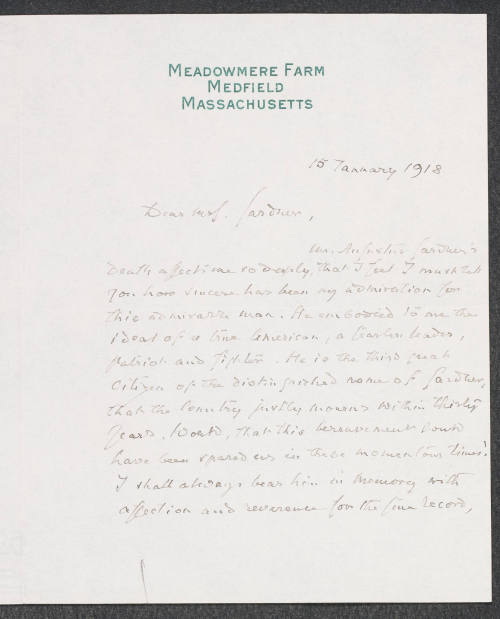 MEADOWMERE FARM
MEDFIELD
MASSACHUSETTS
15 January 1918
Dear Mrs. Gardner,
Mr. Augustus Gardner's
death affects me so deeply, that I feel I must tell
you how sincere has been my admiration for
this admirable man. He embodied to me the
ideal of a true American, a fearless leader,
patriot and fighter. He is the third great
Citizen of the distinguished name of Gardner,
that the Country justly mourns within thirty
years. Would, that this bereavement could
have been spared us in these momentous times!
I shall always bear him in memory with
affection and reverence for the fine record,